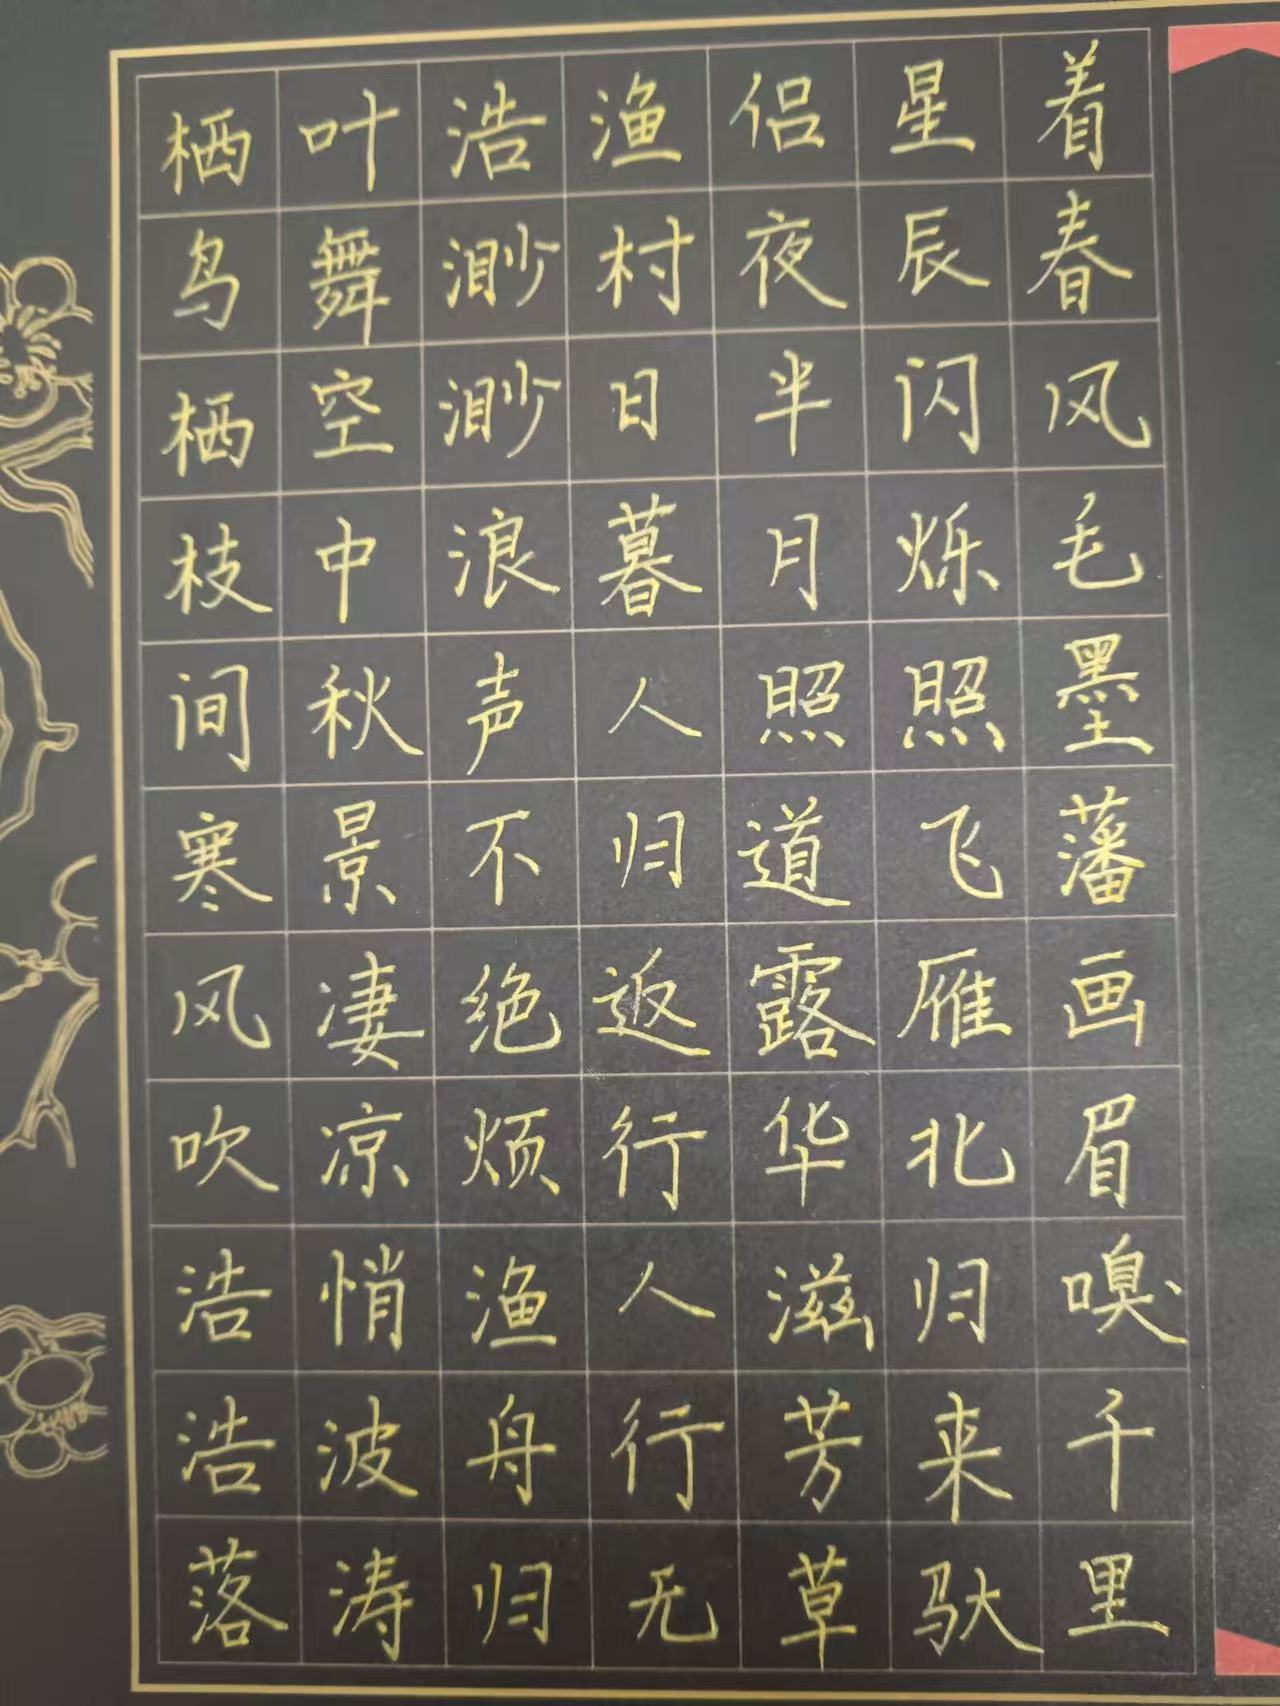 栖鸟栖枝间寒风吹浩浩落
叶舞空中秋景凄凉悄波涛
浩渺渺浪声不绝烦渔舟归
渔村日暮人归返行人行无
侣夜半月照道露华滋芳草
星辰闪烁照飞雁北归来驮
着春风毛墨藩画眉嗅千里